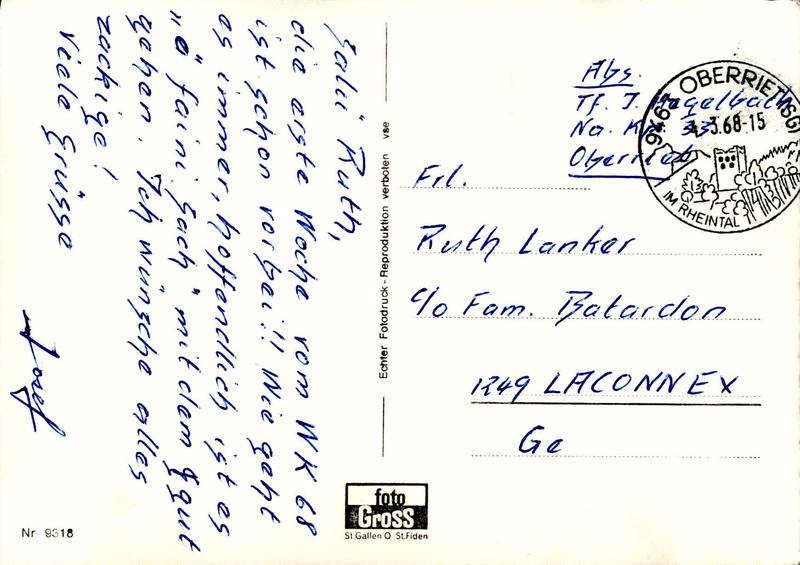 Salü Ruth,
die erste Woche vom WK 68
ist schon vorbei!! Wie geht
es immer, hoffendlich ist es
"ö faini Sach" mit dem gut
gehen. Ich wünsche alles
zackige!
Viele Grüsse
Josef
Nr 9318
Echter Fotodruck - Reproduktion verboten vse
foto
GROSS
St.Gallen O St.Fiden
Abs.
Tf. J. Hagelbach
Na. Kp. 33
Oberriet
9463 OBERRIET (SG)
4.3.68-15
IM RHEINTAL
Frl.
Ruth Lanker
c/o Fam. Batardon
1249 LACONNEX
Ge